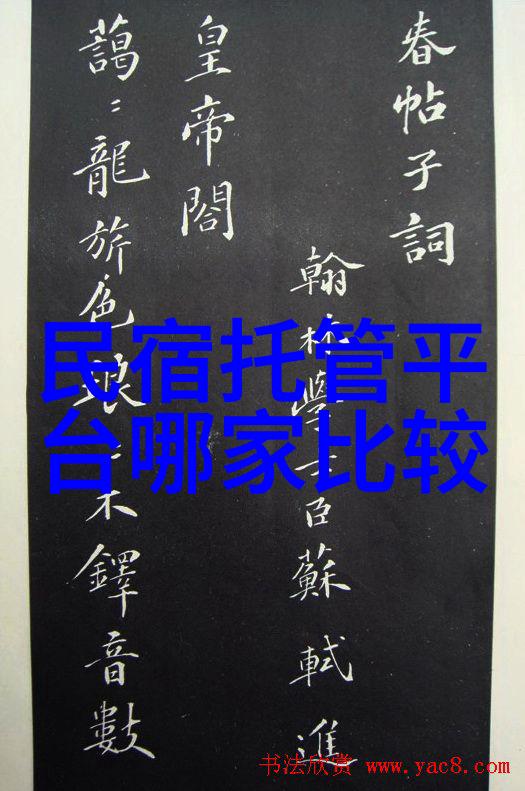 春帖子詞
翰林學士臣蘇軾進
皇帝閤
藹〻龍旂色琅〻木鐸音數
民宿托管平
台哪家比较
书法欣赏 www.yac8.com